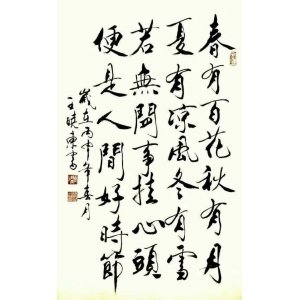 春有百花秋有月
夏有凉风冬有雪
若無閒事挂心頭
便是人間好時節
歲在丙申年春月
王晓东書